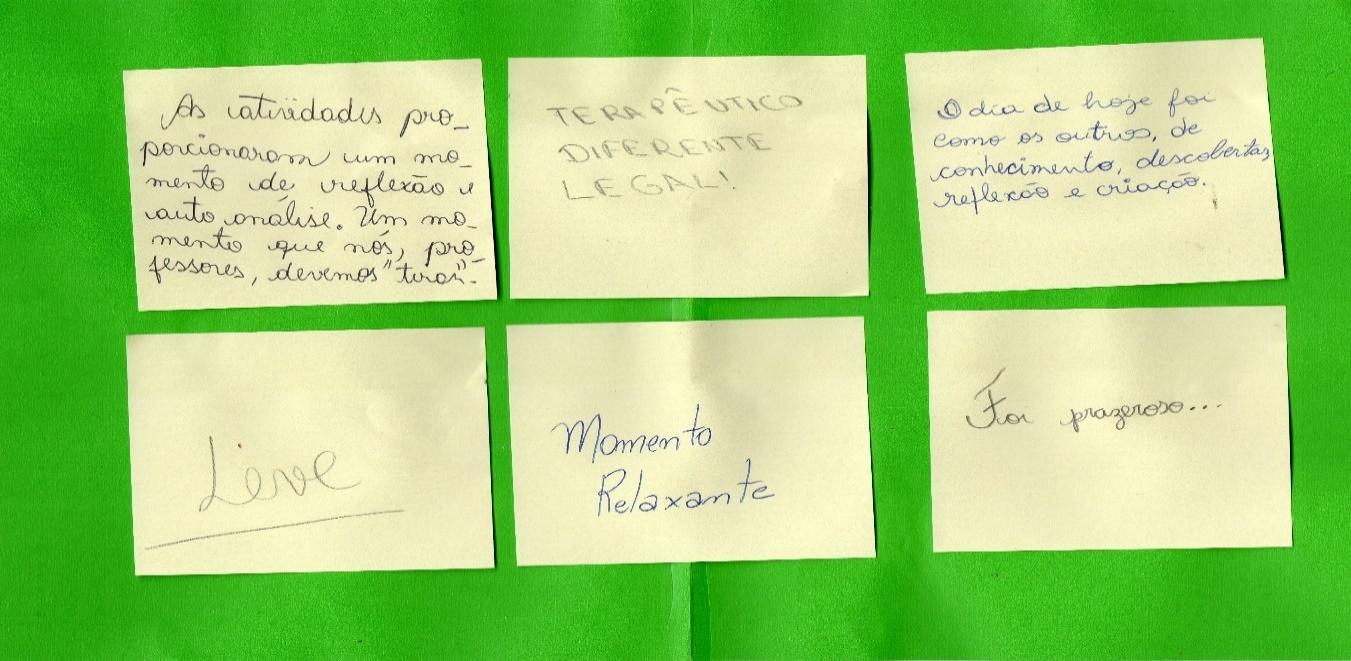 As atividades pro_
porcionaram um mo_
mento de reflexão e
auto análise. Um mo_
mento que nós, pro_
fessores, devemos "tirar".
TERAPÊUTICO
DIFERENTE
LEGAL!
O dia de hoje foi
como os outros, de
conhecimento, descobertas,
reflexão e criação.
Leve
Momento
Relaxante
Foi prazeroso...